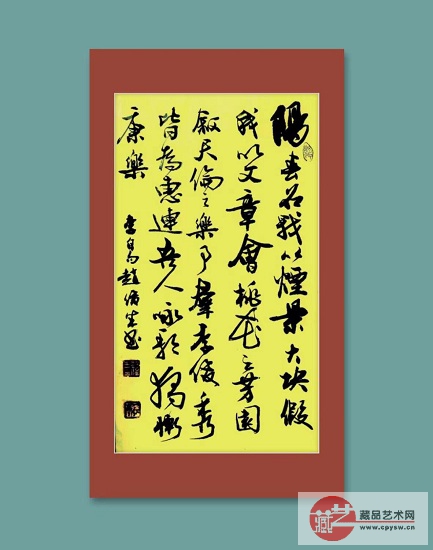 陽春召我以煙景大块假
我以文章會桃花之芳園
叙天倫之樂事羣季俊秀
皆為惠連吾人咏歌獨慚
康樂
李白句趙生書
藏艺
藏品艺术网
www.cpysw.cn